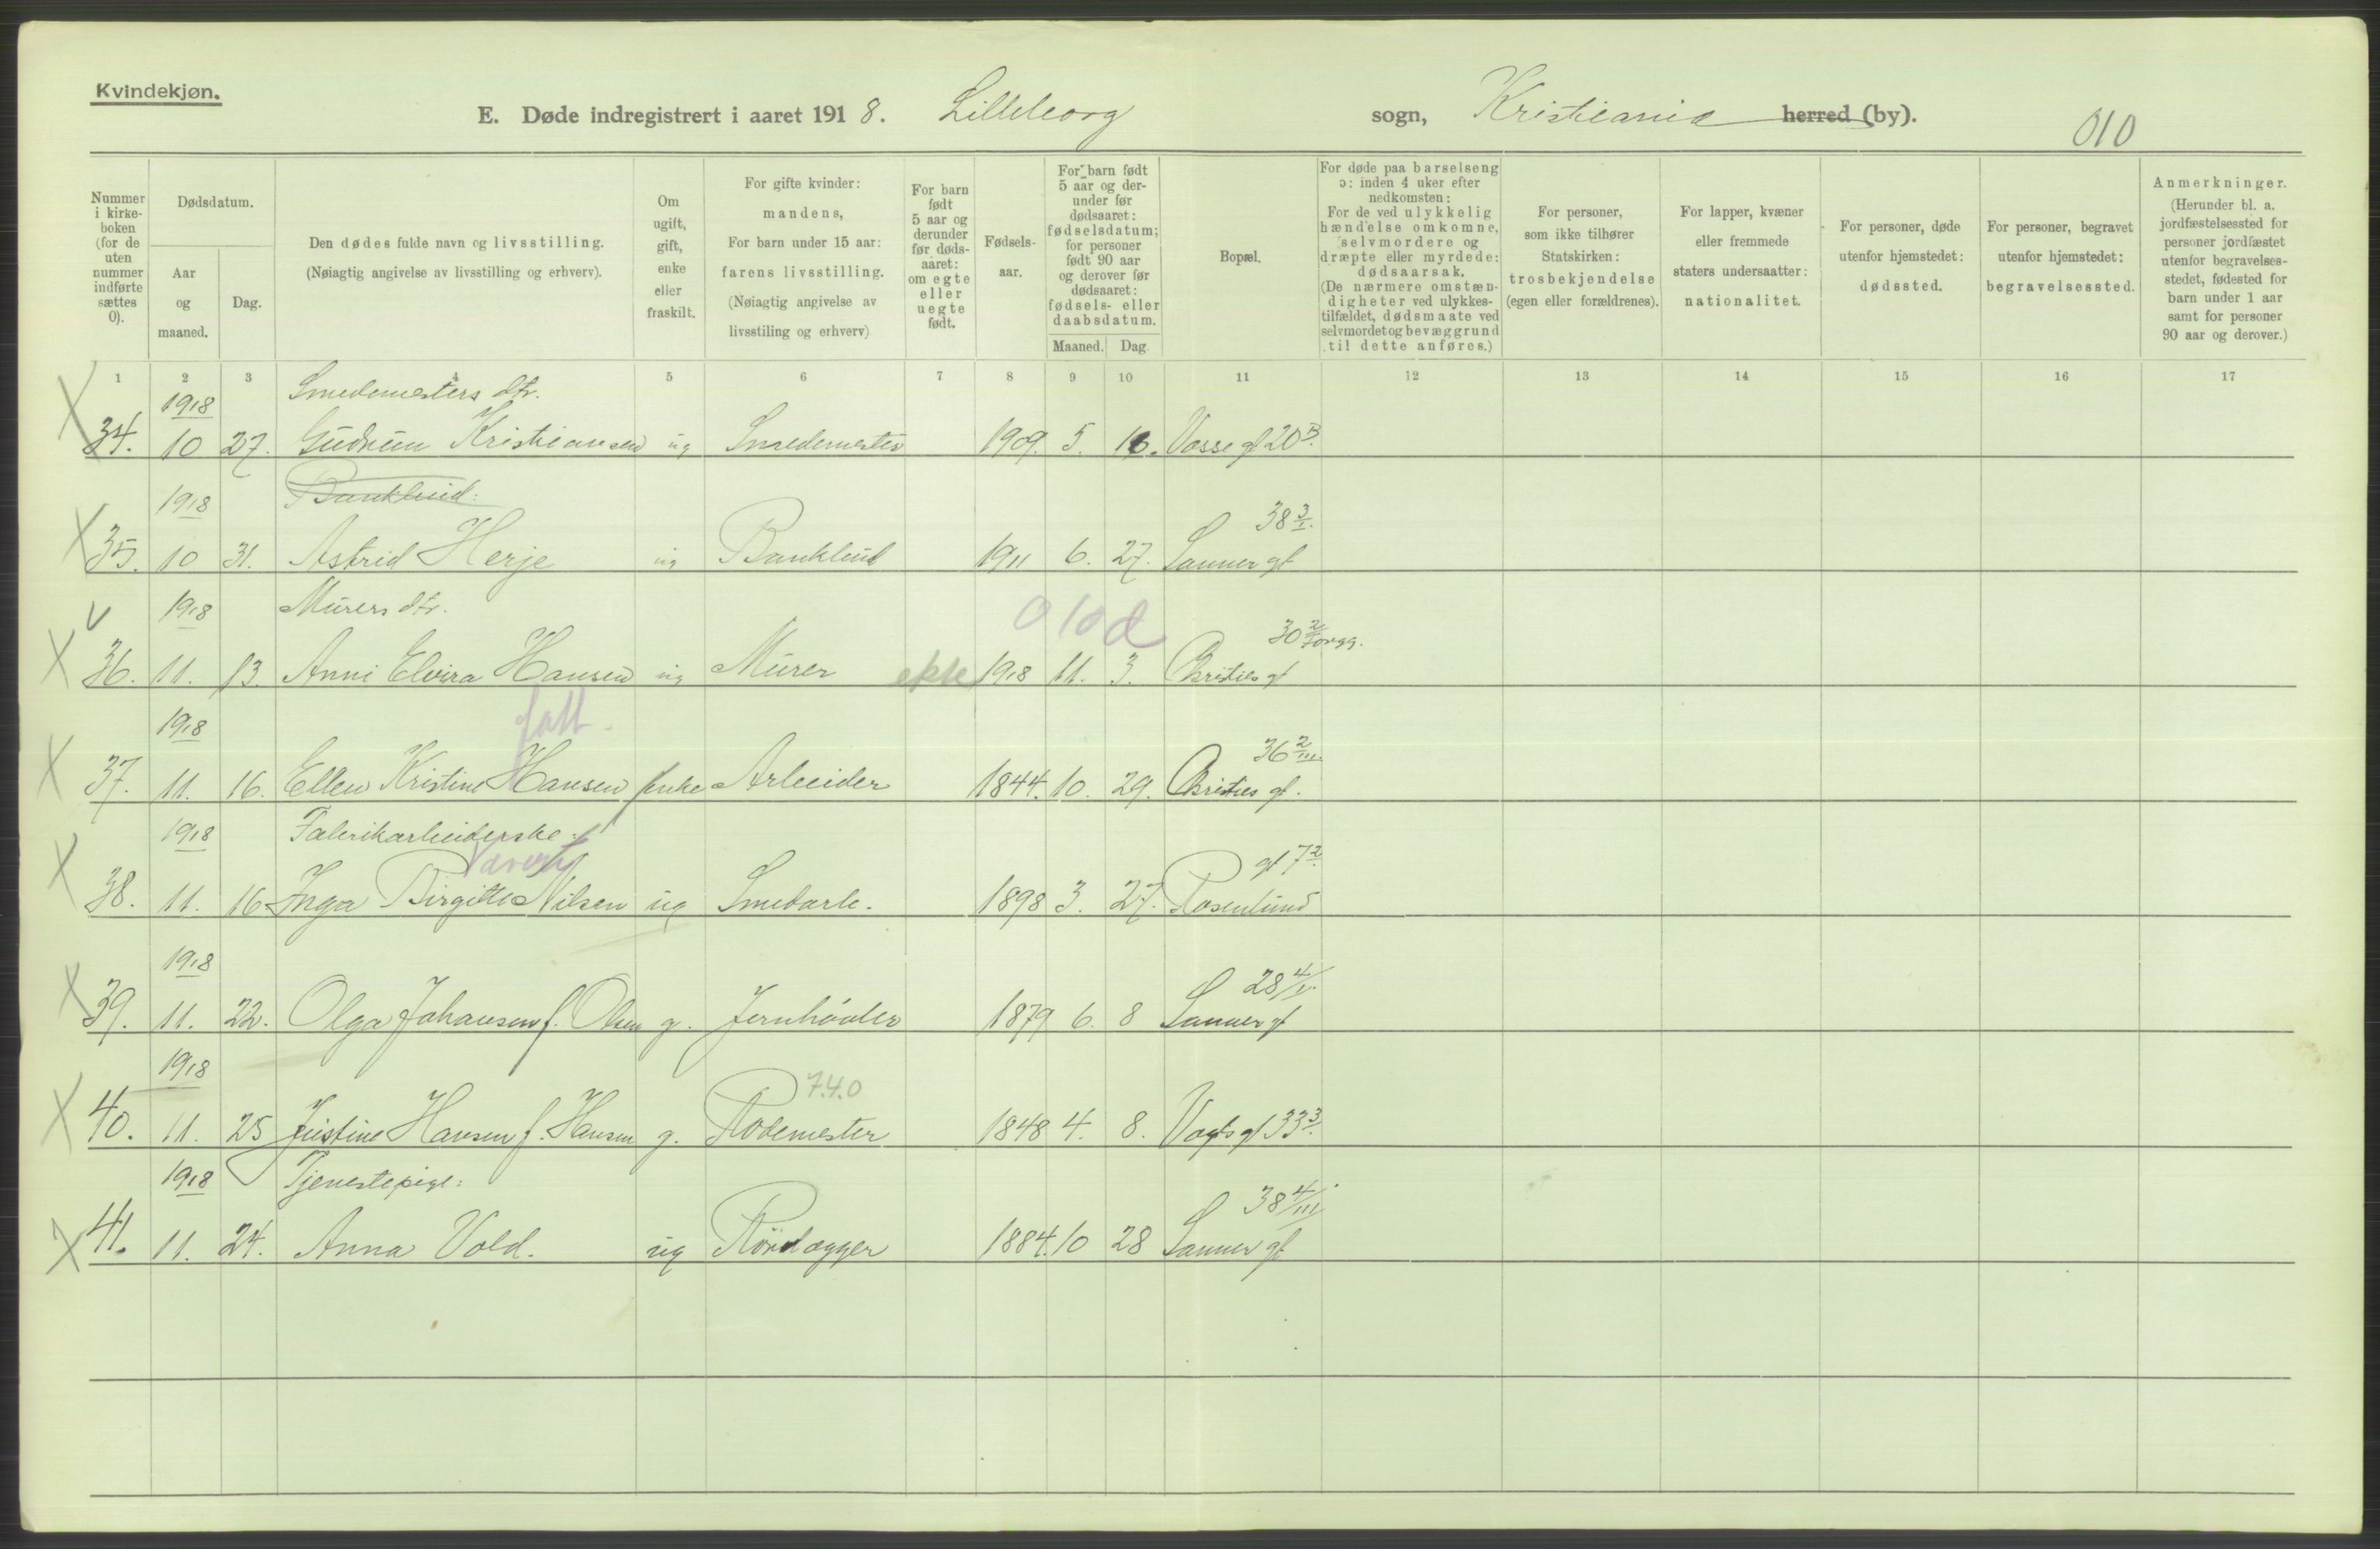 Kvindekjøn.
E. Døde indregistrert i aaret 1918. Lilleborg sogn, Kristiania herred (by).
010
Nummer i kirkeboken (for de uten nummer indførte sættes 0).
Dødsdatum.
Aar og maaned.
Dag.
Den dødes fulde navn og livsstilling.
(Nøiagtig angivelse av livsstilling og erhverv).
Om ugift, gift, enke eller fraskilt.
For gifte kvinder: mandens,
For barn under 15 aar: farens livsstilling.
(Nøiagtig angivelse av livsstiling og erhverv)
For barn født 5 aar og derunder før dødsaaret: om egte eller uegte født.
Fødselsaar.
For barn født 5 aar og derunder før dødsaaret: fødselsdatum; for personer født 90 aar og derover før dødsaaret: fødsels- eller daabsdatum.
Maaned. Dag
Bopæl.
For døde paa barselseng ɔ: inden 4 uker efter nedkomsten:
For de ved ulykkelig hændelse omkomne, selvmordere og dræpte eller myrdede: dødsaarsak.
(De nærmere omstændigheter ved ulykkestilfældet, dødsmaate ved selvmordet og bevæggrund til dette anføres.)
For personer, som ikke tilhører Statskirken: trosbekjendelse (egen eller forældrenes).
For lapper, kvæner eller fremmede staters undersaatter: nationalitet.
For personer, døde utenfor hjemstedet: dødssted.
For personer, begravet utenfor hjemstedet: begravelsessted.
Anmerkninger.
(Herunder bl. a. jordfæstelsessted for personer jordfæstet utenfor begravelsesstedet, fødested for barn under 1 aar samt for personer 90 aar og derover.)
1 2 3 4 5 6 7 8 9 10 11 12 13 14 15 16 17
1918 Smedemesters dtr.
34. 10 27. Gudrun Kristiansen ug Smedemester 1909. 5. 16. Vosse gt 20 B.
1918 Bankbud: 38 3/I.
35. 10 31. Astrid Herje ug Bankbud 1911 6. 27. Sanner gt
1918 Murers dtr. 010d 30 2/Forgg.
36. 11. 13. Anni Elvira Hansen ug Murer ekte 1918 11. 3. Christies gt
1918 fatt. 36 2/III
37. 11. 16. Ellen Kristine Hansen enke Arbeider 1844. 10. 29. Christies gt.
1918 Fabrikarbeiderske: gt 7 2
38. 11. 16 Inga Birgitte Nilsen ug Smedarb. 1898 3. 27. Rosenlund
1918 28 4/
39. 11. 22. Olga Johansen f. Olsen g. Jernhøvler 1879 6. 8 Sanner gt
1918 7.4.0
40. 11. 25 Justine Hansen f. Hansen g. Rodemester 1848 4. 8. Vogts gt 33 3.
1918 Tjenestepige: 38 4/III
41. 11. 24. Anna Vold. ug Rörlægger 1884. 10 28 Sanner gt